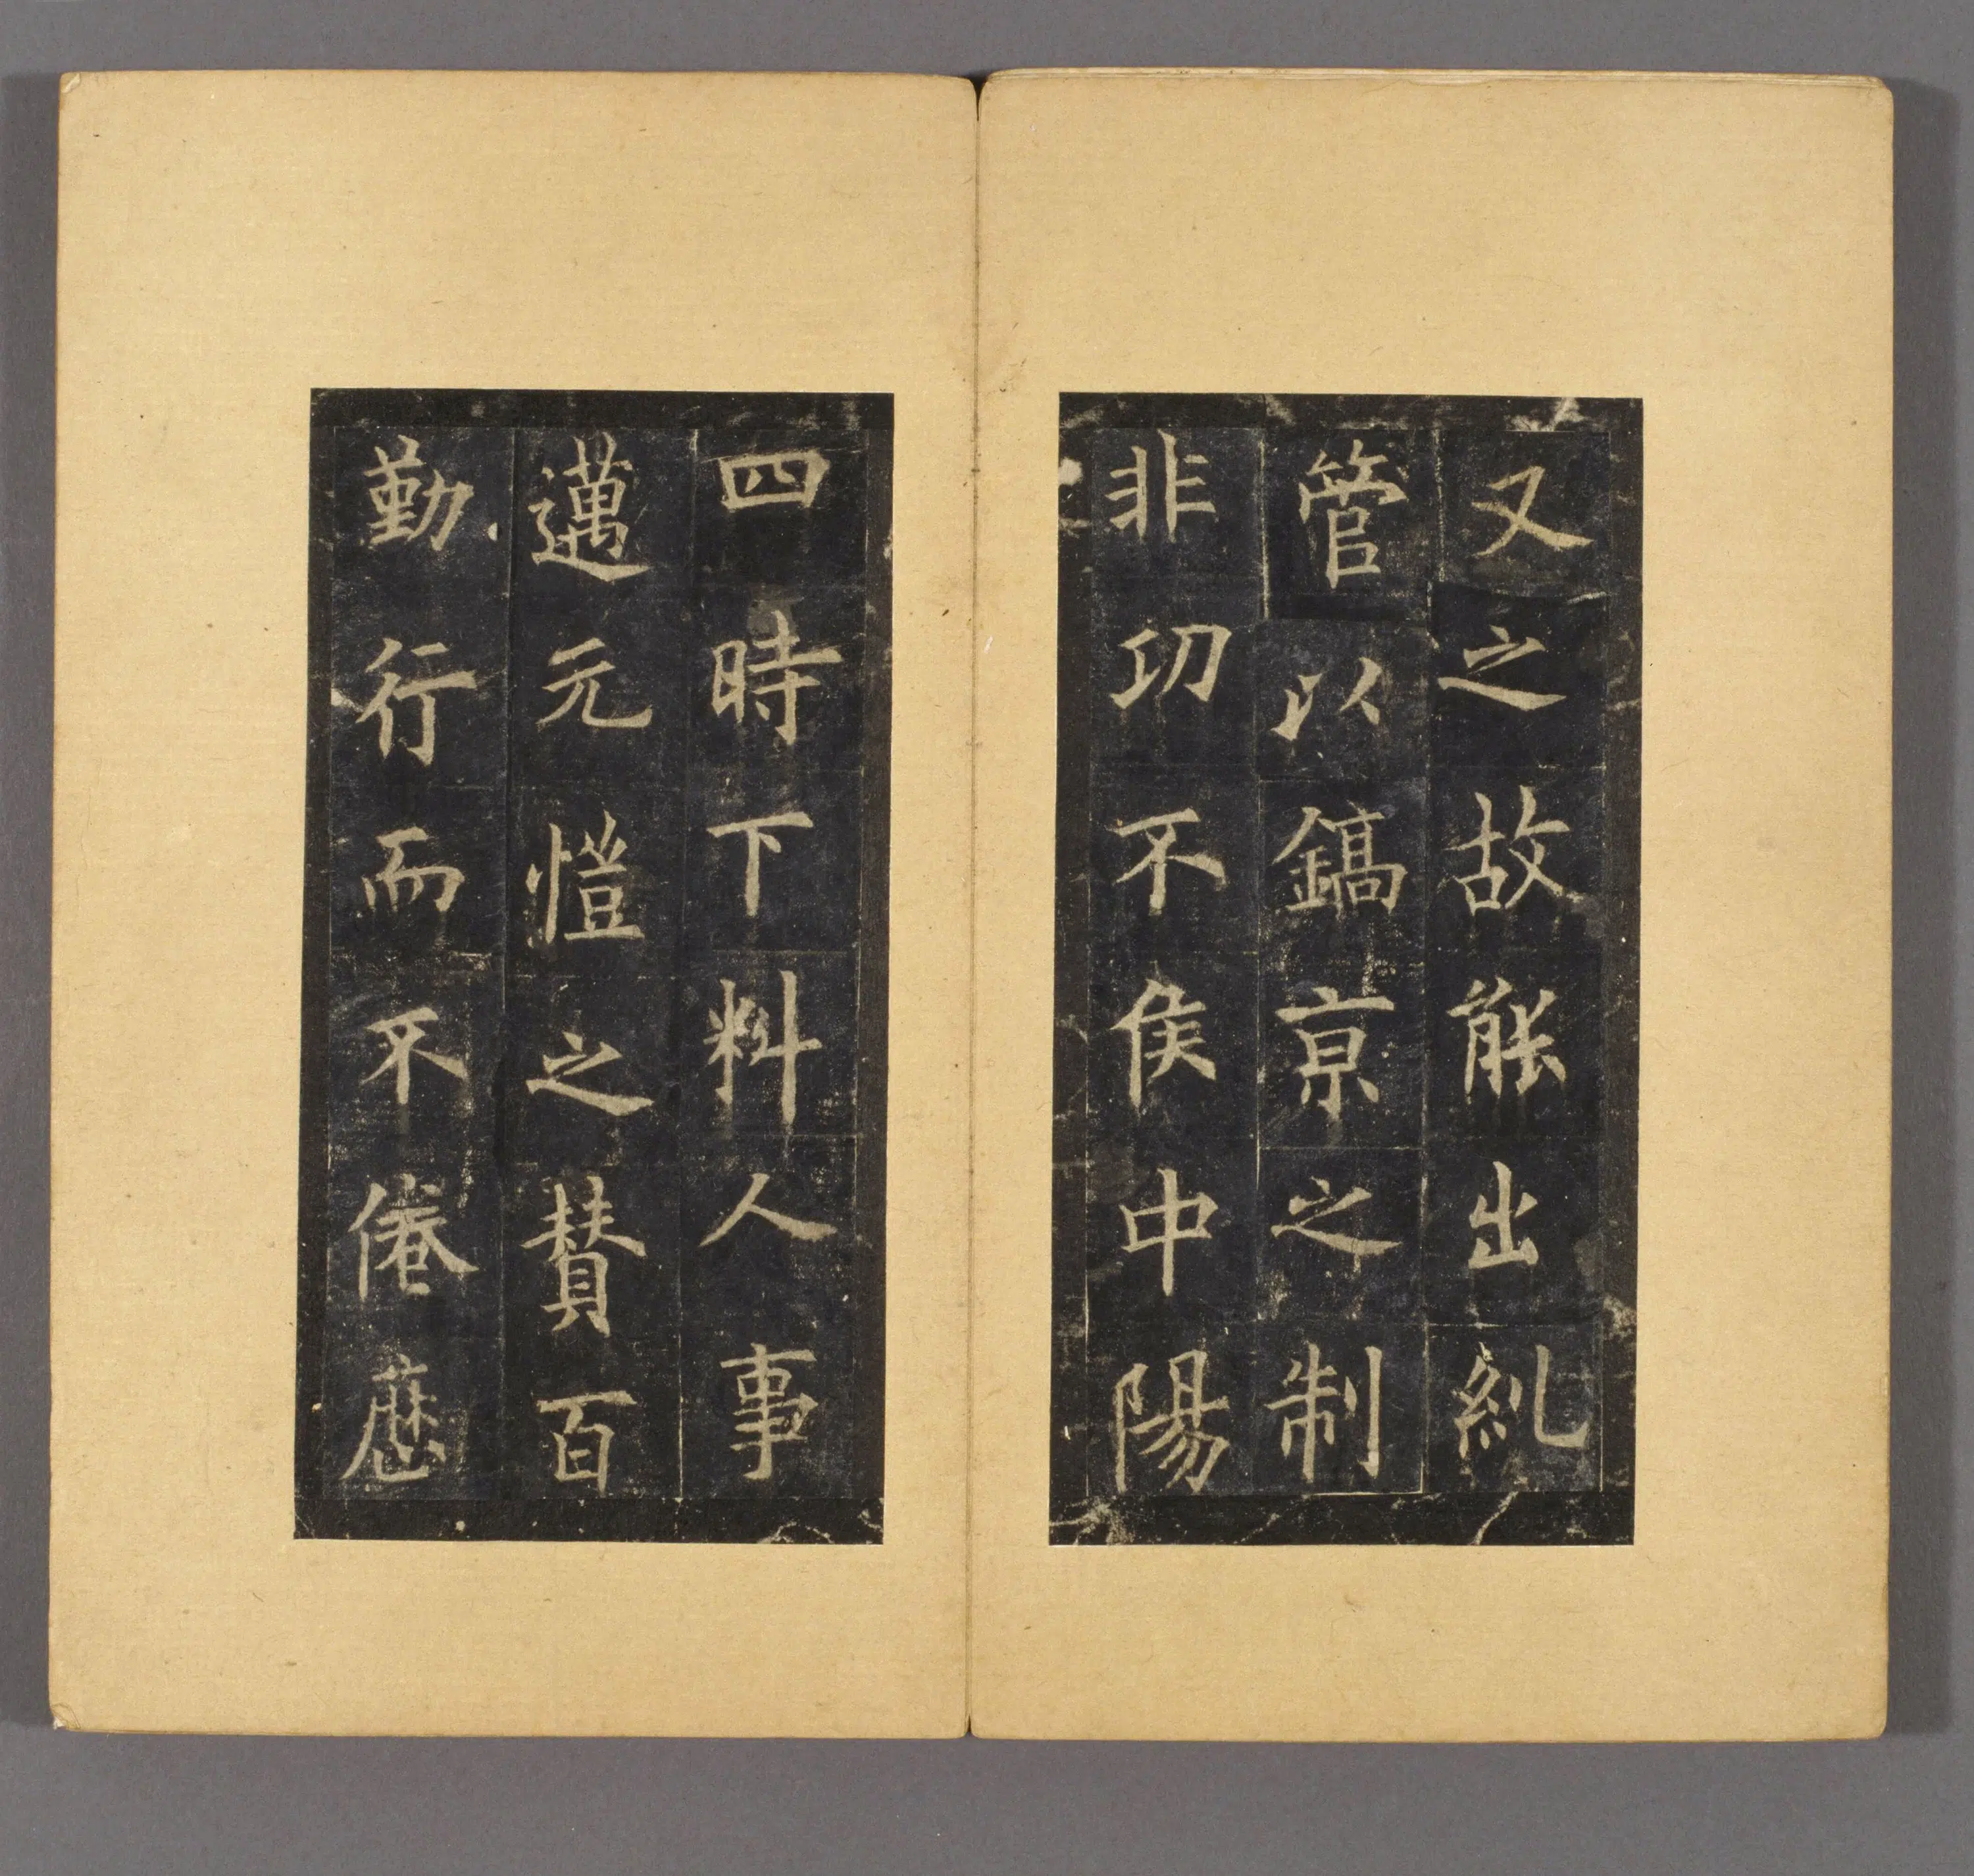 又之故能出糺
管以鎬亰之制
非㓛不侯中陽
四時下料人事
邁元愷之賛百
勤行而不倦歷